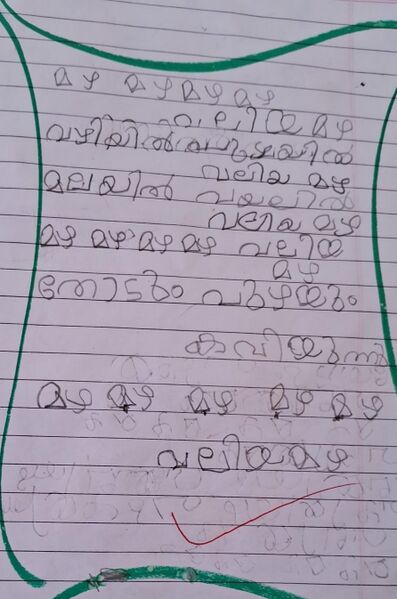 മഴ മഴ മഴ മഴ
വലിയ മഴ
വഴിയിൽ പുഴയിൽ
വലിയ മഴ
മലയിൽ വയലിൽ
വലിയ മഴ
മഴ മഴ മഴ മഴ വലിയ
മഴ
തോടും പുഴയും
കവിയുന്ന
മഴ മഴ മഴ മഴ മഴ
വലിയമഴ